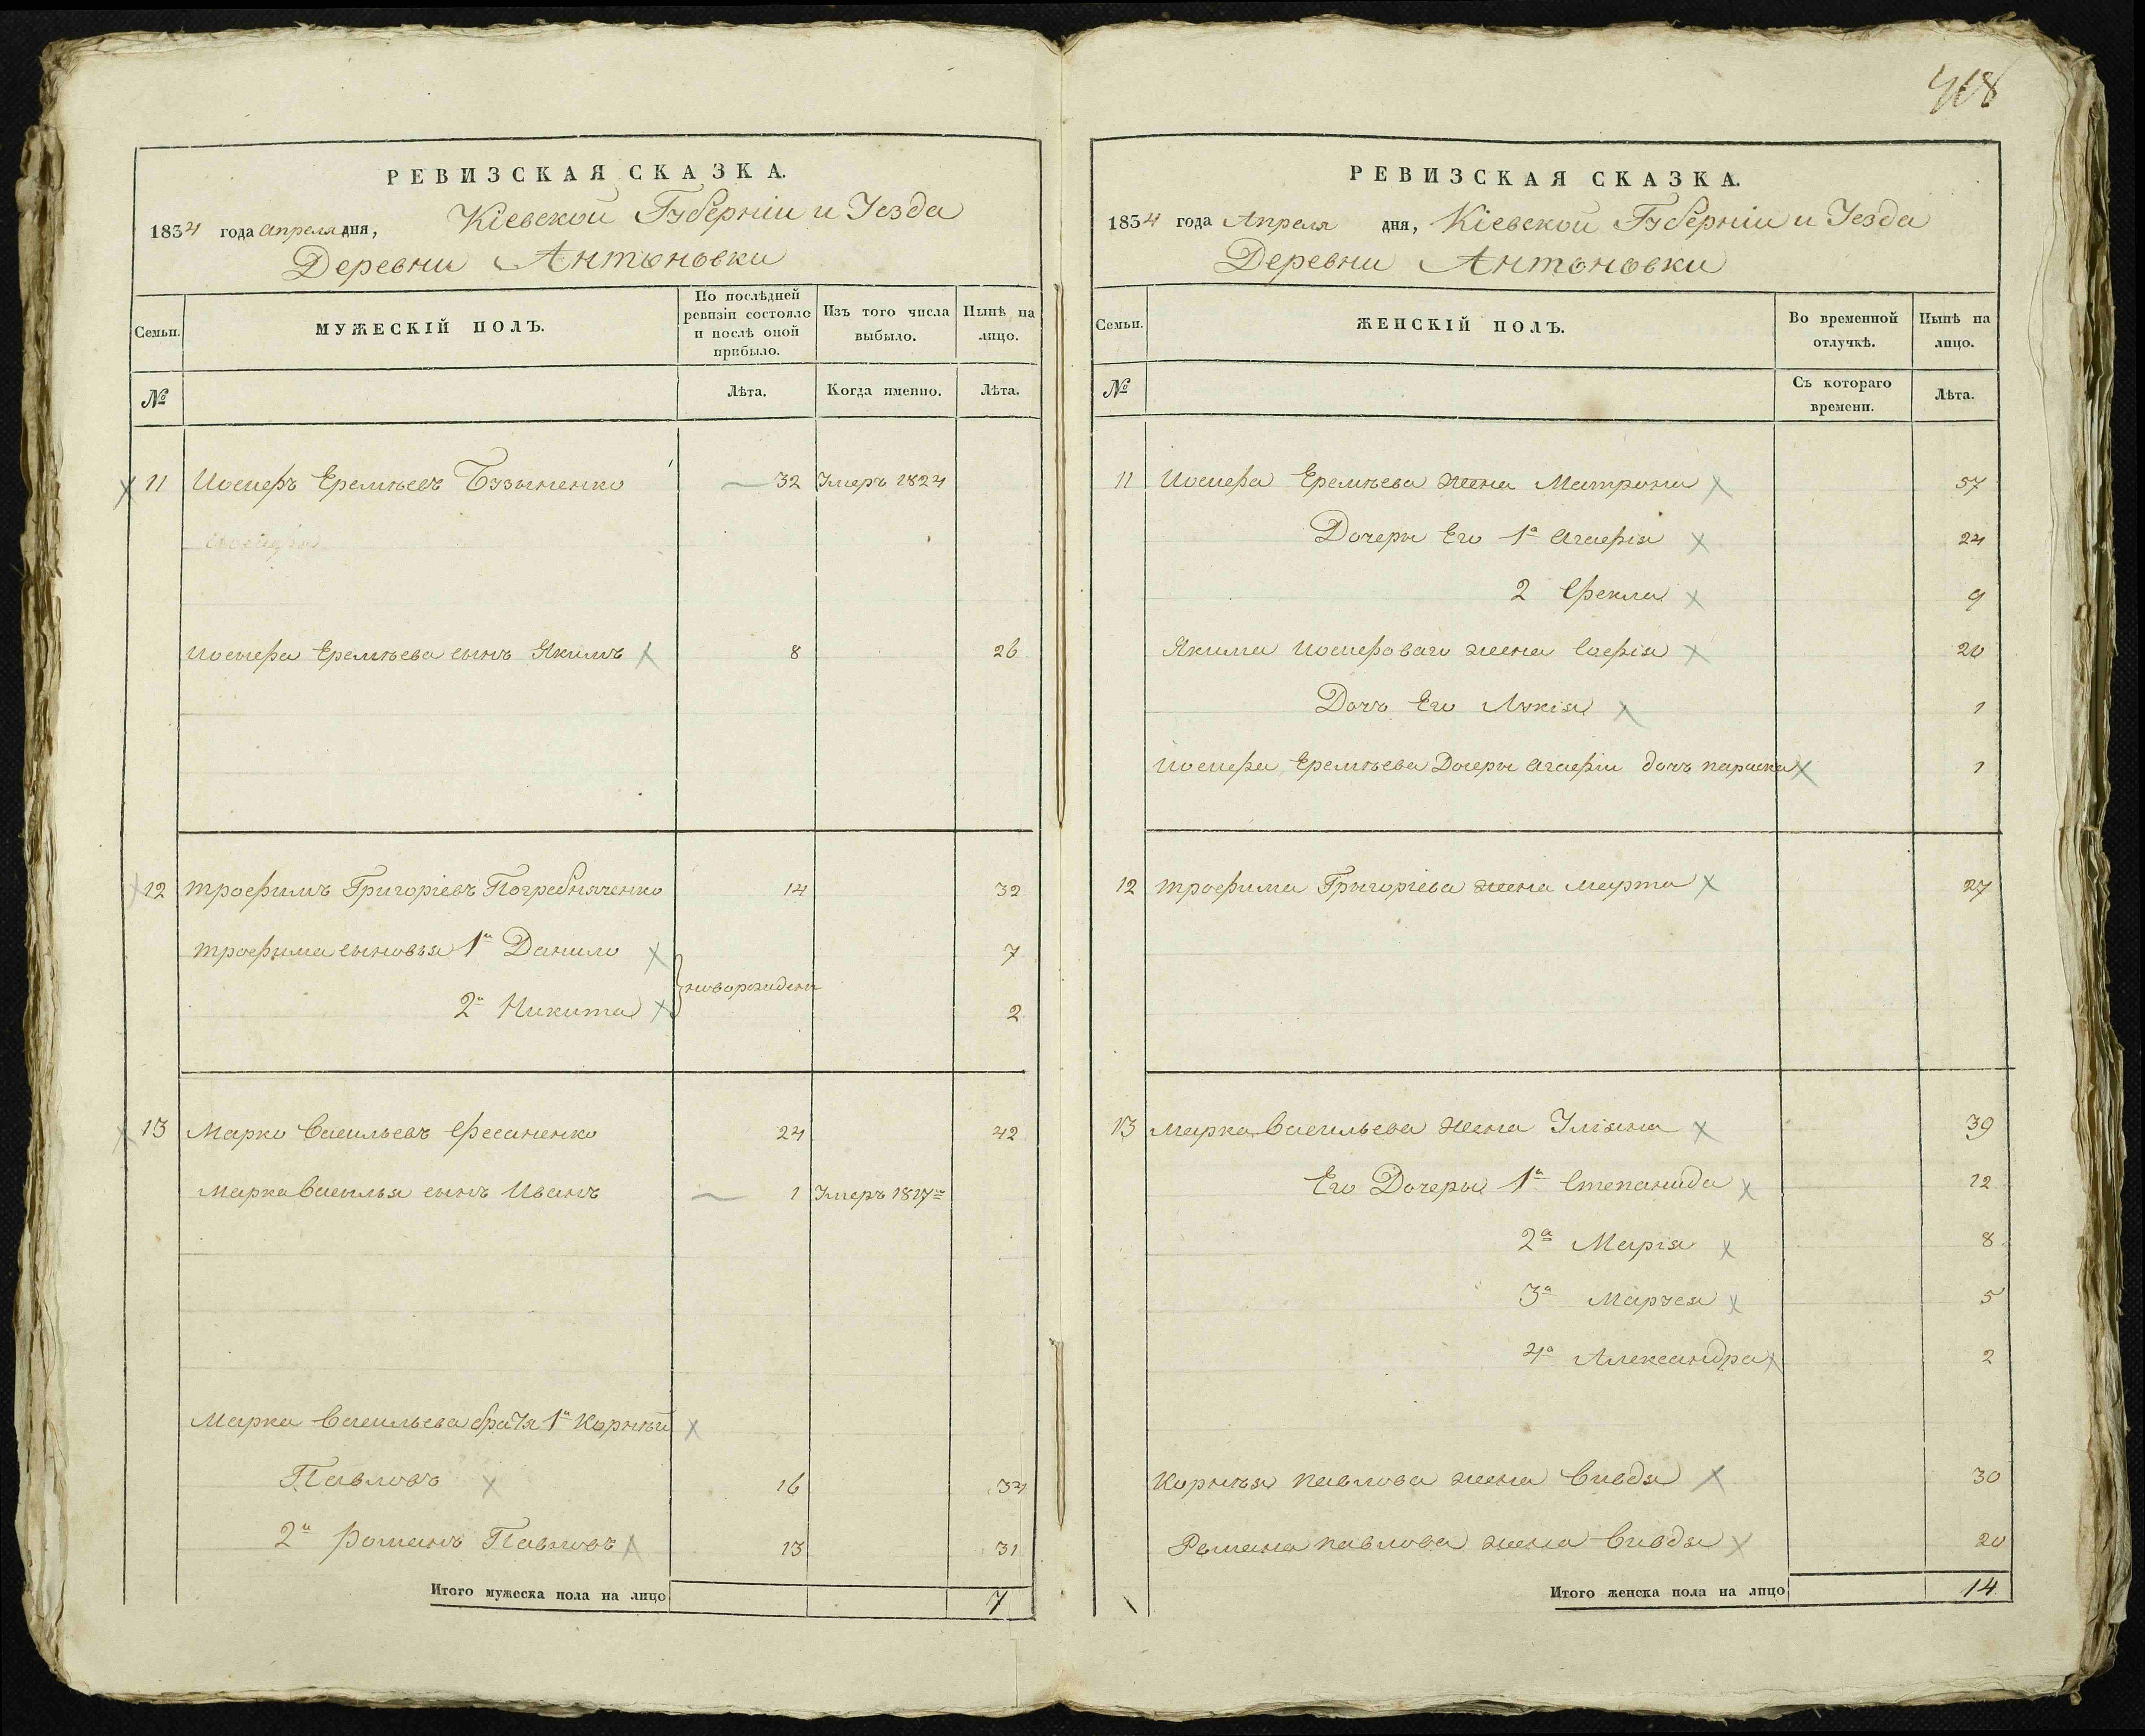 418
РЕВИЗСКАЯ СКАЗКА.
1834 года Апреля дня, Кіевской Губерніи и Уезда
Деревни Антоновки
Семьи. МУЖЕСКІЙ ПОЛЪ. По послѣдней ревизіи состояло и послѣ оной прибыло. Изъ того числа выбыло. Нынѣ на лицо.
№ Лѣта. Когда именно. Лѣта.
11 Иосифъ Еремѣевъ Бузыненко 32 Умеръ 1824
Иосифа Еремѣева сынъ Якимъ 8 26
12 Трофимъ Григоріевъ Погребняченко 14 32
Трофима сыновья 1й Данило 7
новорожденн
2й Никита 2
13 Марко Васильевъ Фесаненко 24 42
Марка Василья сынъ Иванъ 1 Умеръ 1817го
Марка Васильева братя 1й Корнѣй
Павловъ 16 34
2й Романъ Павловъ 13 31
Итого мужеска пола на лицо 7
РЕВИЗСКАЯ СКАЗКА.
1834 года Апреля дня, Кіевской Губерніи и Уезда
Деревни Антоновки
Семьи. ЖЕНСКІЙ ПОЛЪ. Во временной отлучкѣ. Нынѣ на лицо.
№ Съ котораго времени. Лѣта.
11 Иосифа Еремѣева жена Матрона 57
Дочери Его 1я Агафія 24
2 Фекла 9
Якима Иосифоваго жена Софія 20
Дочь Его Лукія 1
Иосифа Еремѣева Дочери Агафіи дочь параска 1
12 Трофима Григоріева жена марта 27
13 Марка Васильева жена Уліяна 39
Его Дочеры 1я Степанида 12
2я Марія 8
3я 5
4я Александра 2
Корнѣя павлова жена Сивдя 30
Романа павлова жена Сивдя 20
Итого женска пола на лицо 14